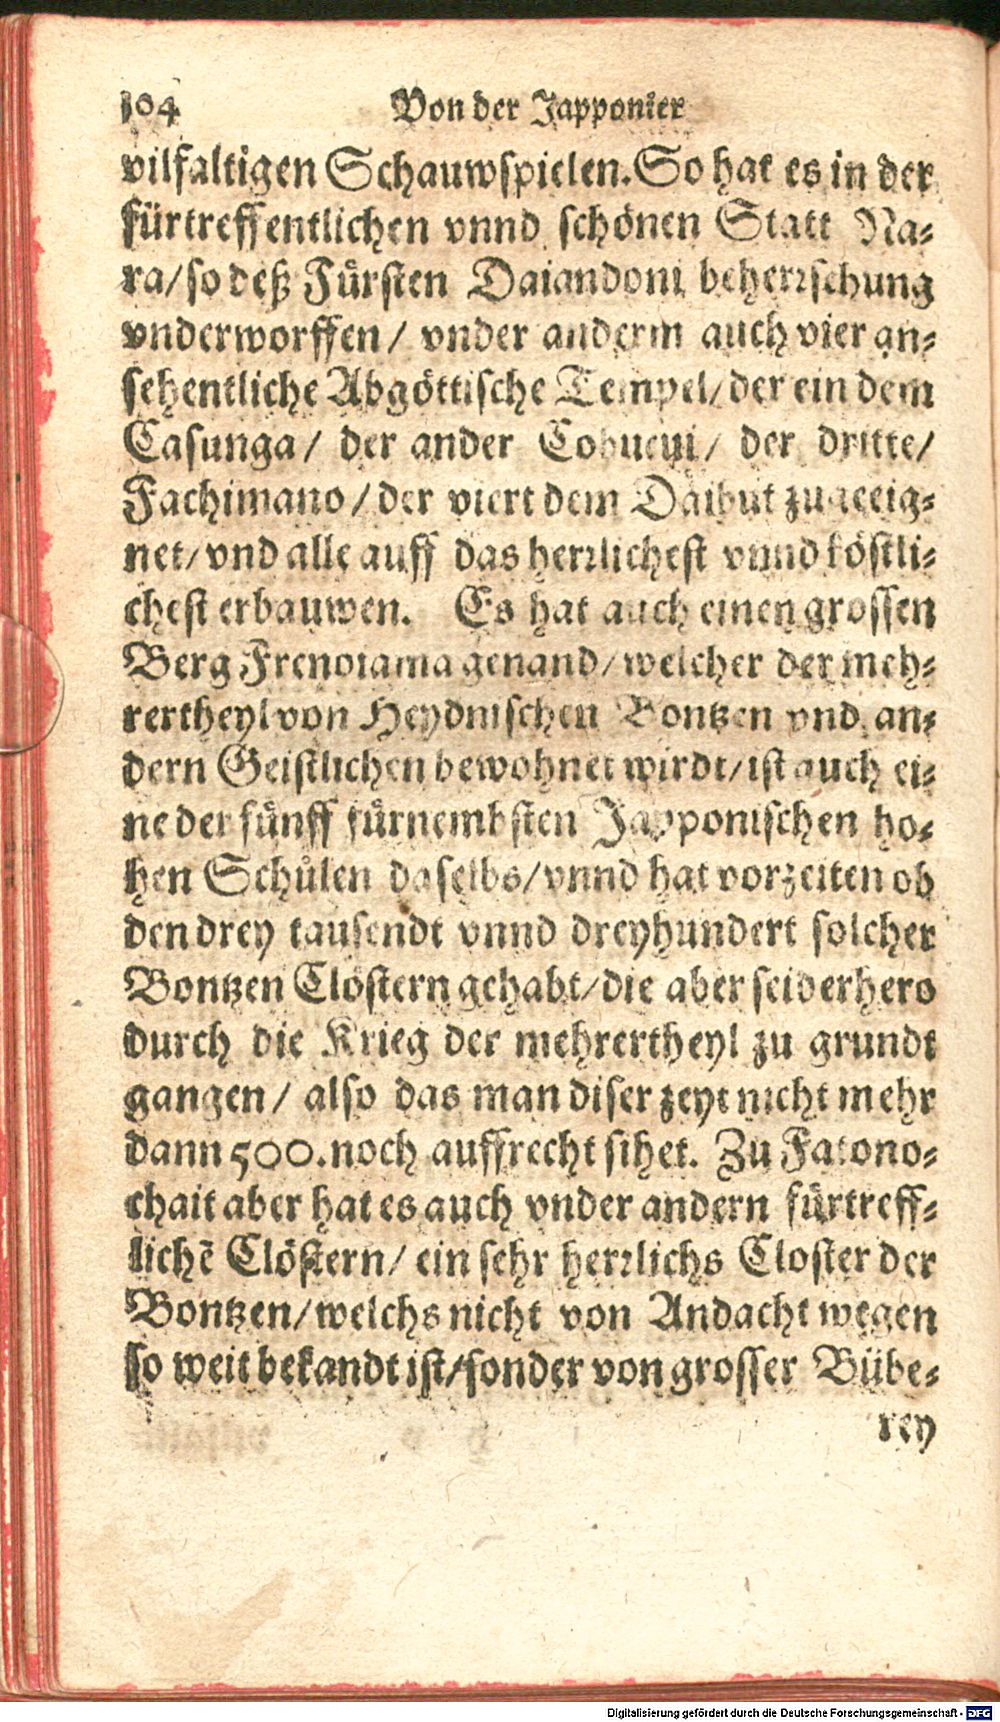 104 Von der Japponier
vilfaltigen Schauwspielen. So hat es in der
fürtreffentlichen vnnd schönen Statt Na-
ra/ so deß Fürsten Daiandoni beherrschung
vnderworffen/ vnder anderm auch vier an-
sehentliche Abgöttische Tempel/ der ein dem
Casunga/ der ander Cobucui/ der dritte/
Fachimano/ der viert dem Daibut zugeeig-
net/ vnd alle auff das herrlichest vnnd köstli-
chest erbauwen. Es hat auch einen grossen
Berg Frenoiama genand/ welcher der meh-
rertheyl von Heydnischen Bontzen vnd an-
dern Geistlichen bewohnet wirdt/ ist auch ei-
ne der fünff fürnembsten Japponischen ho-
hen Schůlen daselbs/ vnnd hat vorzeiten ob
den drey tausendt vnnd dreyhundert solcher
Bontzen Clöstern gehabt/ die aber seiderhero
durch die Krieg der mehrertheyl zu grundt
gangen/ also das man diser zeyt nicht mehr
dann 500. noch auffrecht sihet. Zu Fatono-
chait aber hat es auch vnder andern fürtreff-
lichē Clöstern/ ein sehr herrlichs Closter der
Bontzen/ welchs nicht von Andacht wegen
so weit bekandt ist/ sonder von grosser Bübe-
rey
Digitalisierung gefördert durch die Deutsche Forschungsgemeinschaft - DFG